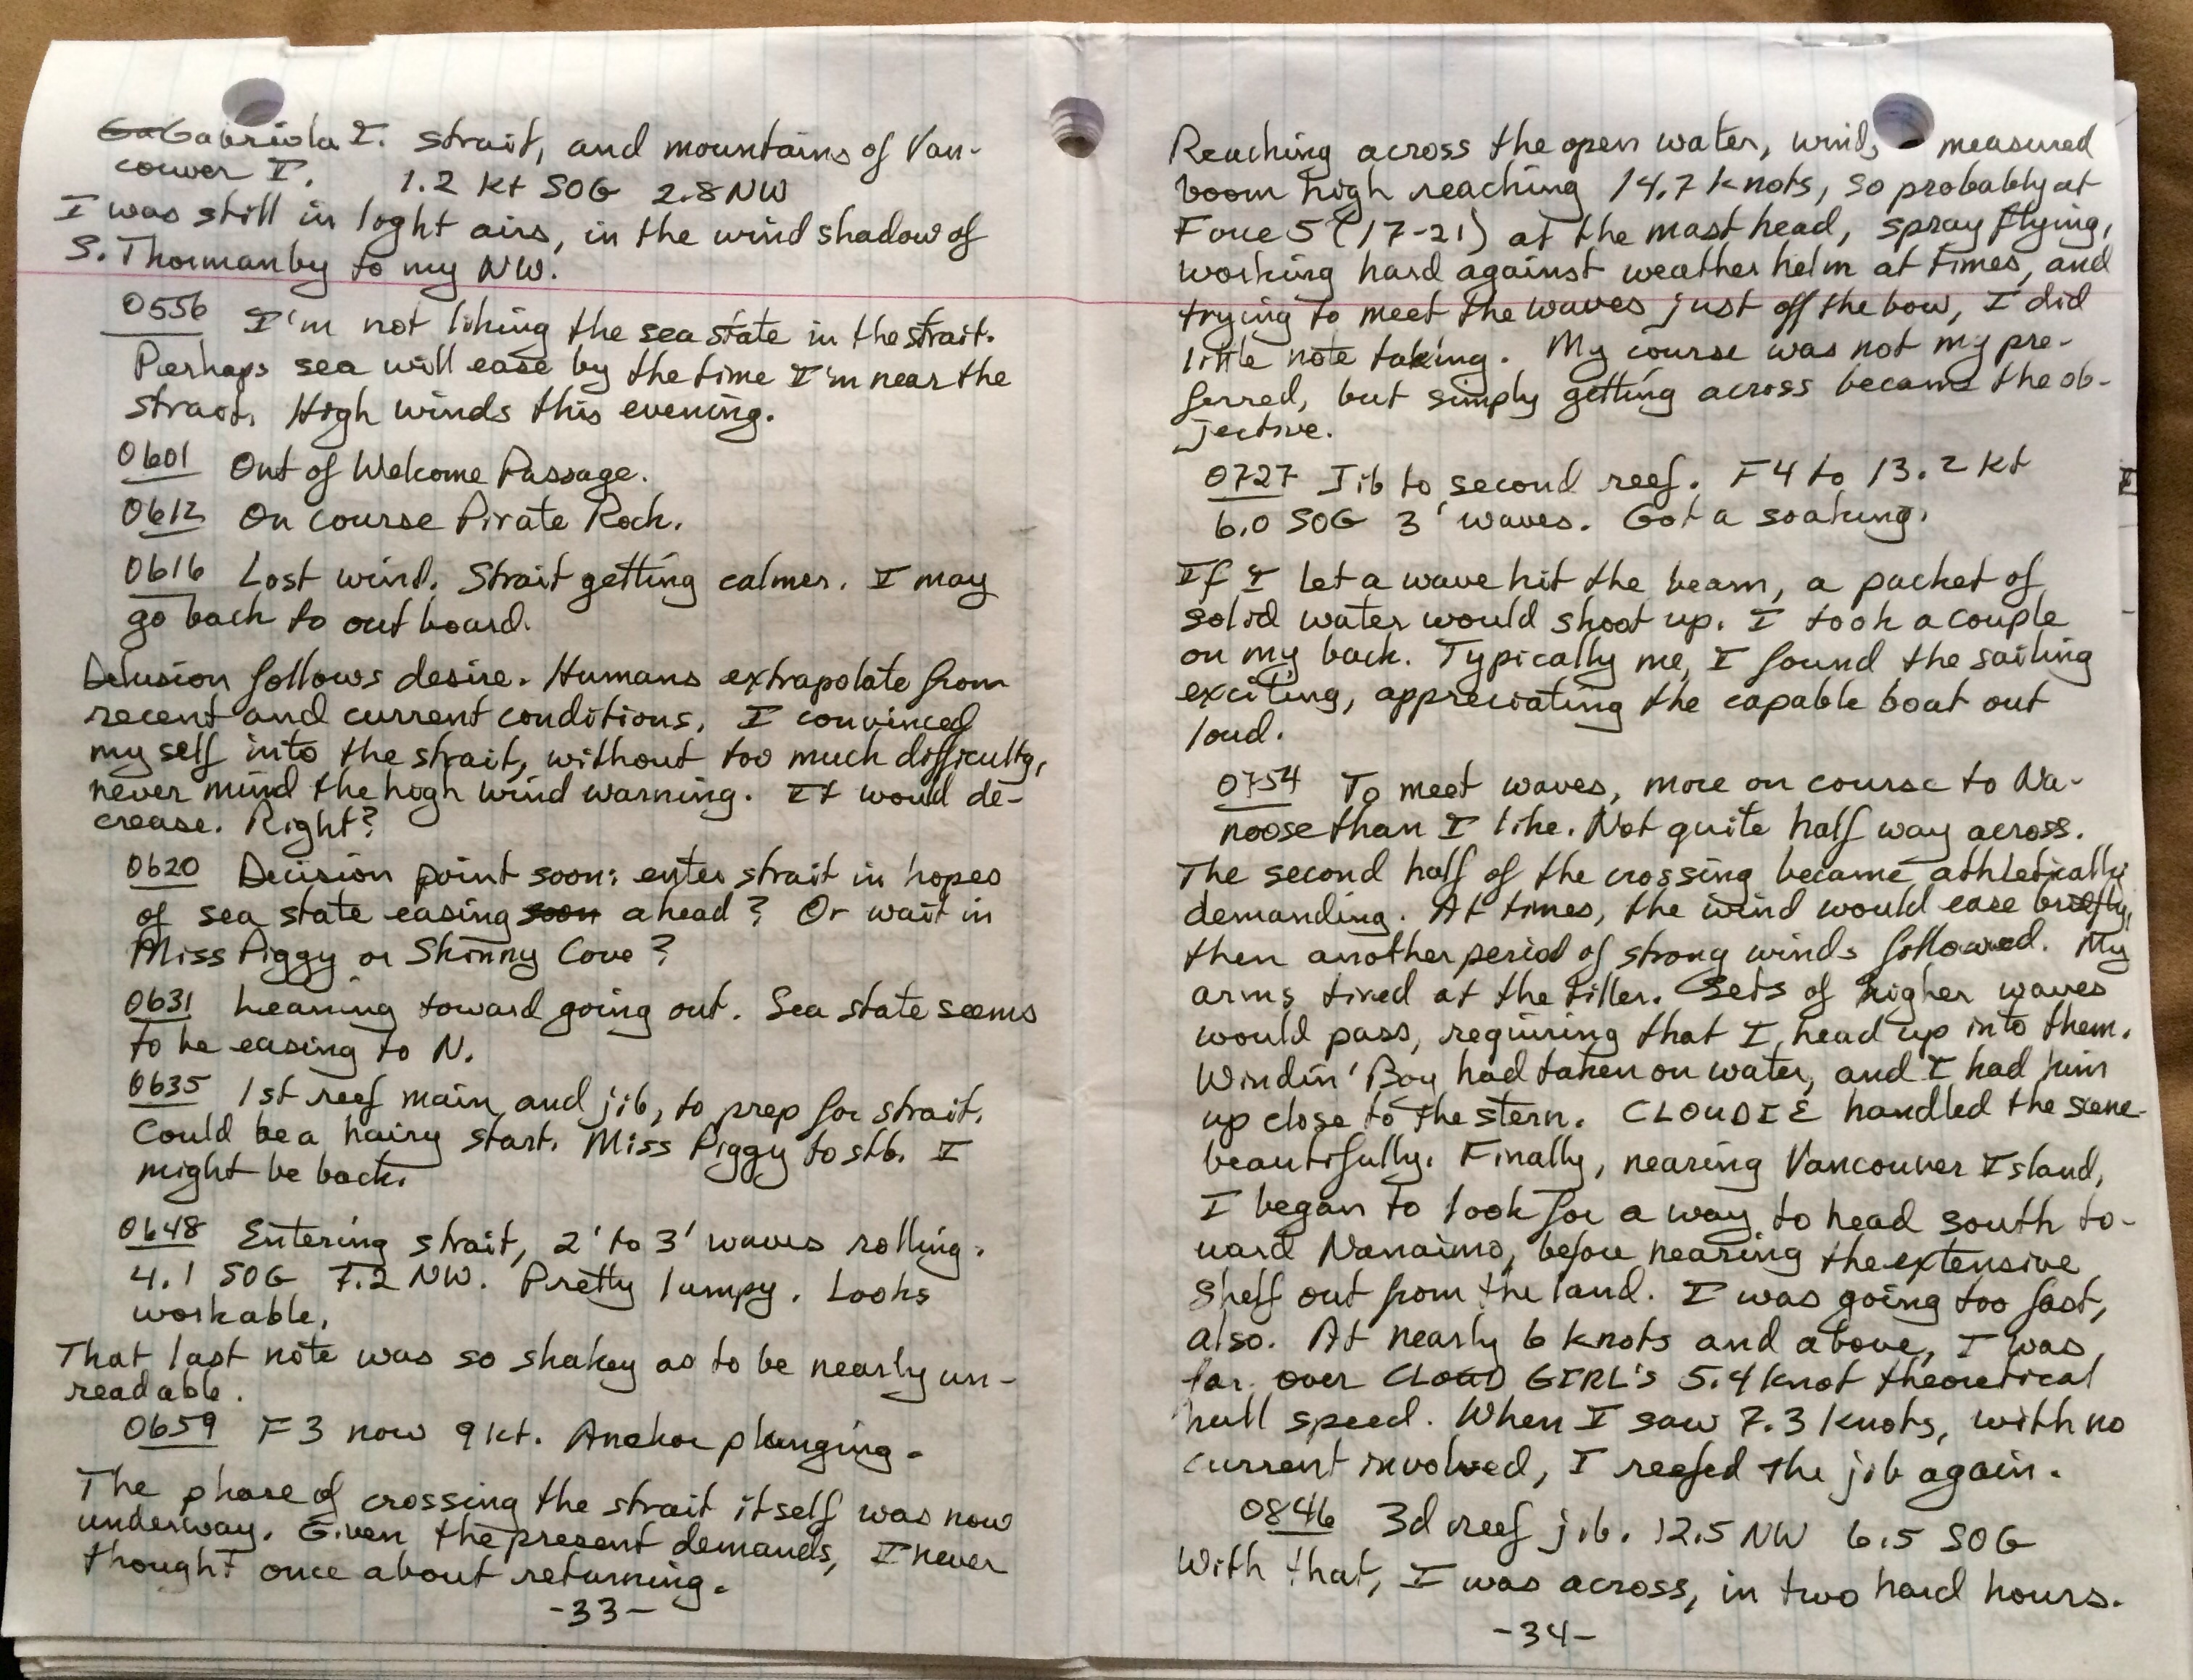 Gabriola I. strait, and mountains of Van-
couver I. 1.2 kt SOG 2.8 NW
I was still in light airs, in the wind shadow of
S. Thormanby to my NW.
0556 I'm not liking the sea state in the strait.
Perhaps sea will ease by the time I'm near the
strait. High winds this evening.
0601 Out of Welcome Passage.
0612 On course Pirate Rock.
0616 Lost wind. Strait getting calmer. I may
go back to out board.
Delusion follows desire. Humans extrapolate from
recent and current conditions. I convinced
my self into the strait, without too much difficulty,
never mind the high wind warning. It would de-
crease. Right?
0620 Decision point soon: enter strait in hopes
of sea state easing soon ahead? Or wait in
Miss Piggy or Skinny Cove?
0631 Leaning toward going out. Sea state seems
to be easing to N.
0635 1st reef main and jib, to prep for strait.
Could be a hairy start. Miss Piggy to stb. I
might be back.
0648 Entering strait, 2' to 3' waves rolling.
4.1 SOG 7.2 NW. Pretty lumpy. Looks
workable.
That last note was so shakey as to be nearly un-
readable.
0659 F3 now 9 kt. Anchor plunging.
The phase of crossing the strait itself was now
underway. Given the present demands, I never
thought once about returning.
-33-
Reaching across the open water, winds measured
boom high reaching 14.7 knots, so probably at
Force 5 (17-21) at the mast head, spray flying,
working hard against weather helm at times, and
trying to meet the waves just off the bow, I did
little note taking. My course was not my pre-
ferred, but simply getting across became the ob-
jective.
0727 Jib to second reef. F4 to 13.2 kt
6.0 SOG 3' waves. Got a soaking.
If I let a wave hit the beam, a packet of
solid water would shoot up. I took a couple
on my back. Typically me, I found the sailing
exciting, appreciating the capable boat out
loud.
0754 To meet waves, more on course to Na-
noose than I like. Not quite half way across.
The second half of the crossing became athletically
demanding. At times, the wind would ease briefly,
then another period of strong winds followed. My
arms tired at the tiller. Sets of higher waves
would pass, requiring that I head up into them.
Windin' Boy had taken on water, and I had him
up close to the stern. CLOUDIE handled the scene
beautifully. Finally, nearing Vancouver Island,
I began to look for a way to head south to-
ward Nanaimo, before nearing the extensive
shelf out from the land. I was going too fast,
also. At nearly 6 knots and above, I was
far over CLOUD GIRL'S 5.4 knot theoretical
hull speed. When I saw 7.3 knots, with no
current involved, I reefed the jib again.
0846 3d reef jib. 12.5 NW 6.5 SOG
With that, I was across, in two hard hours.
-34-